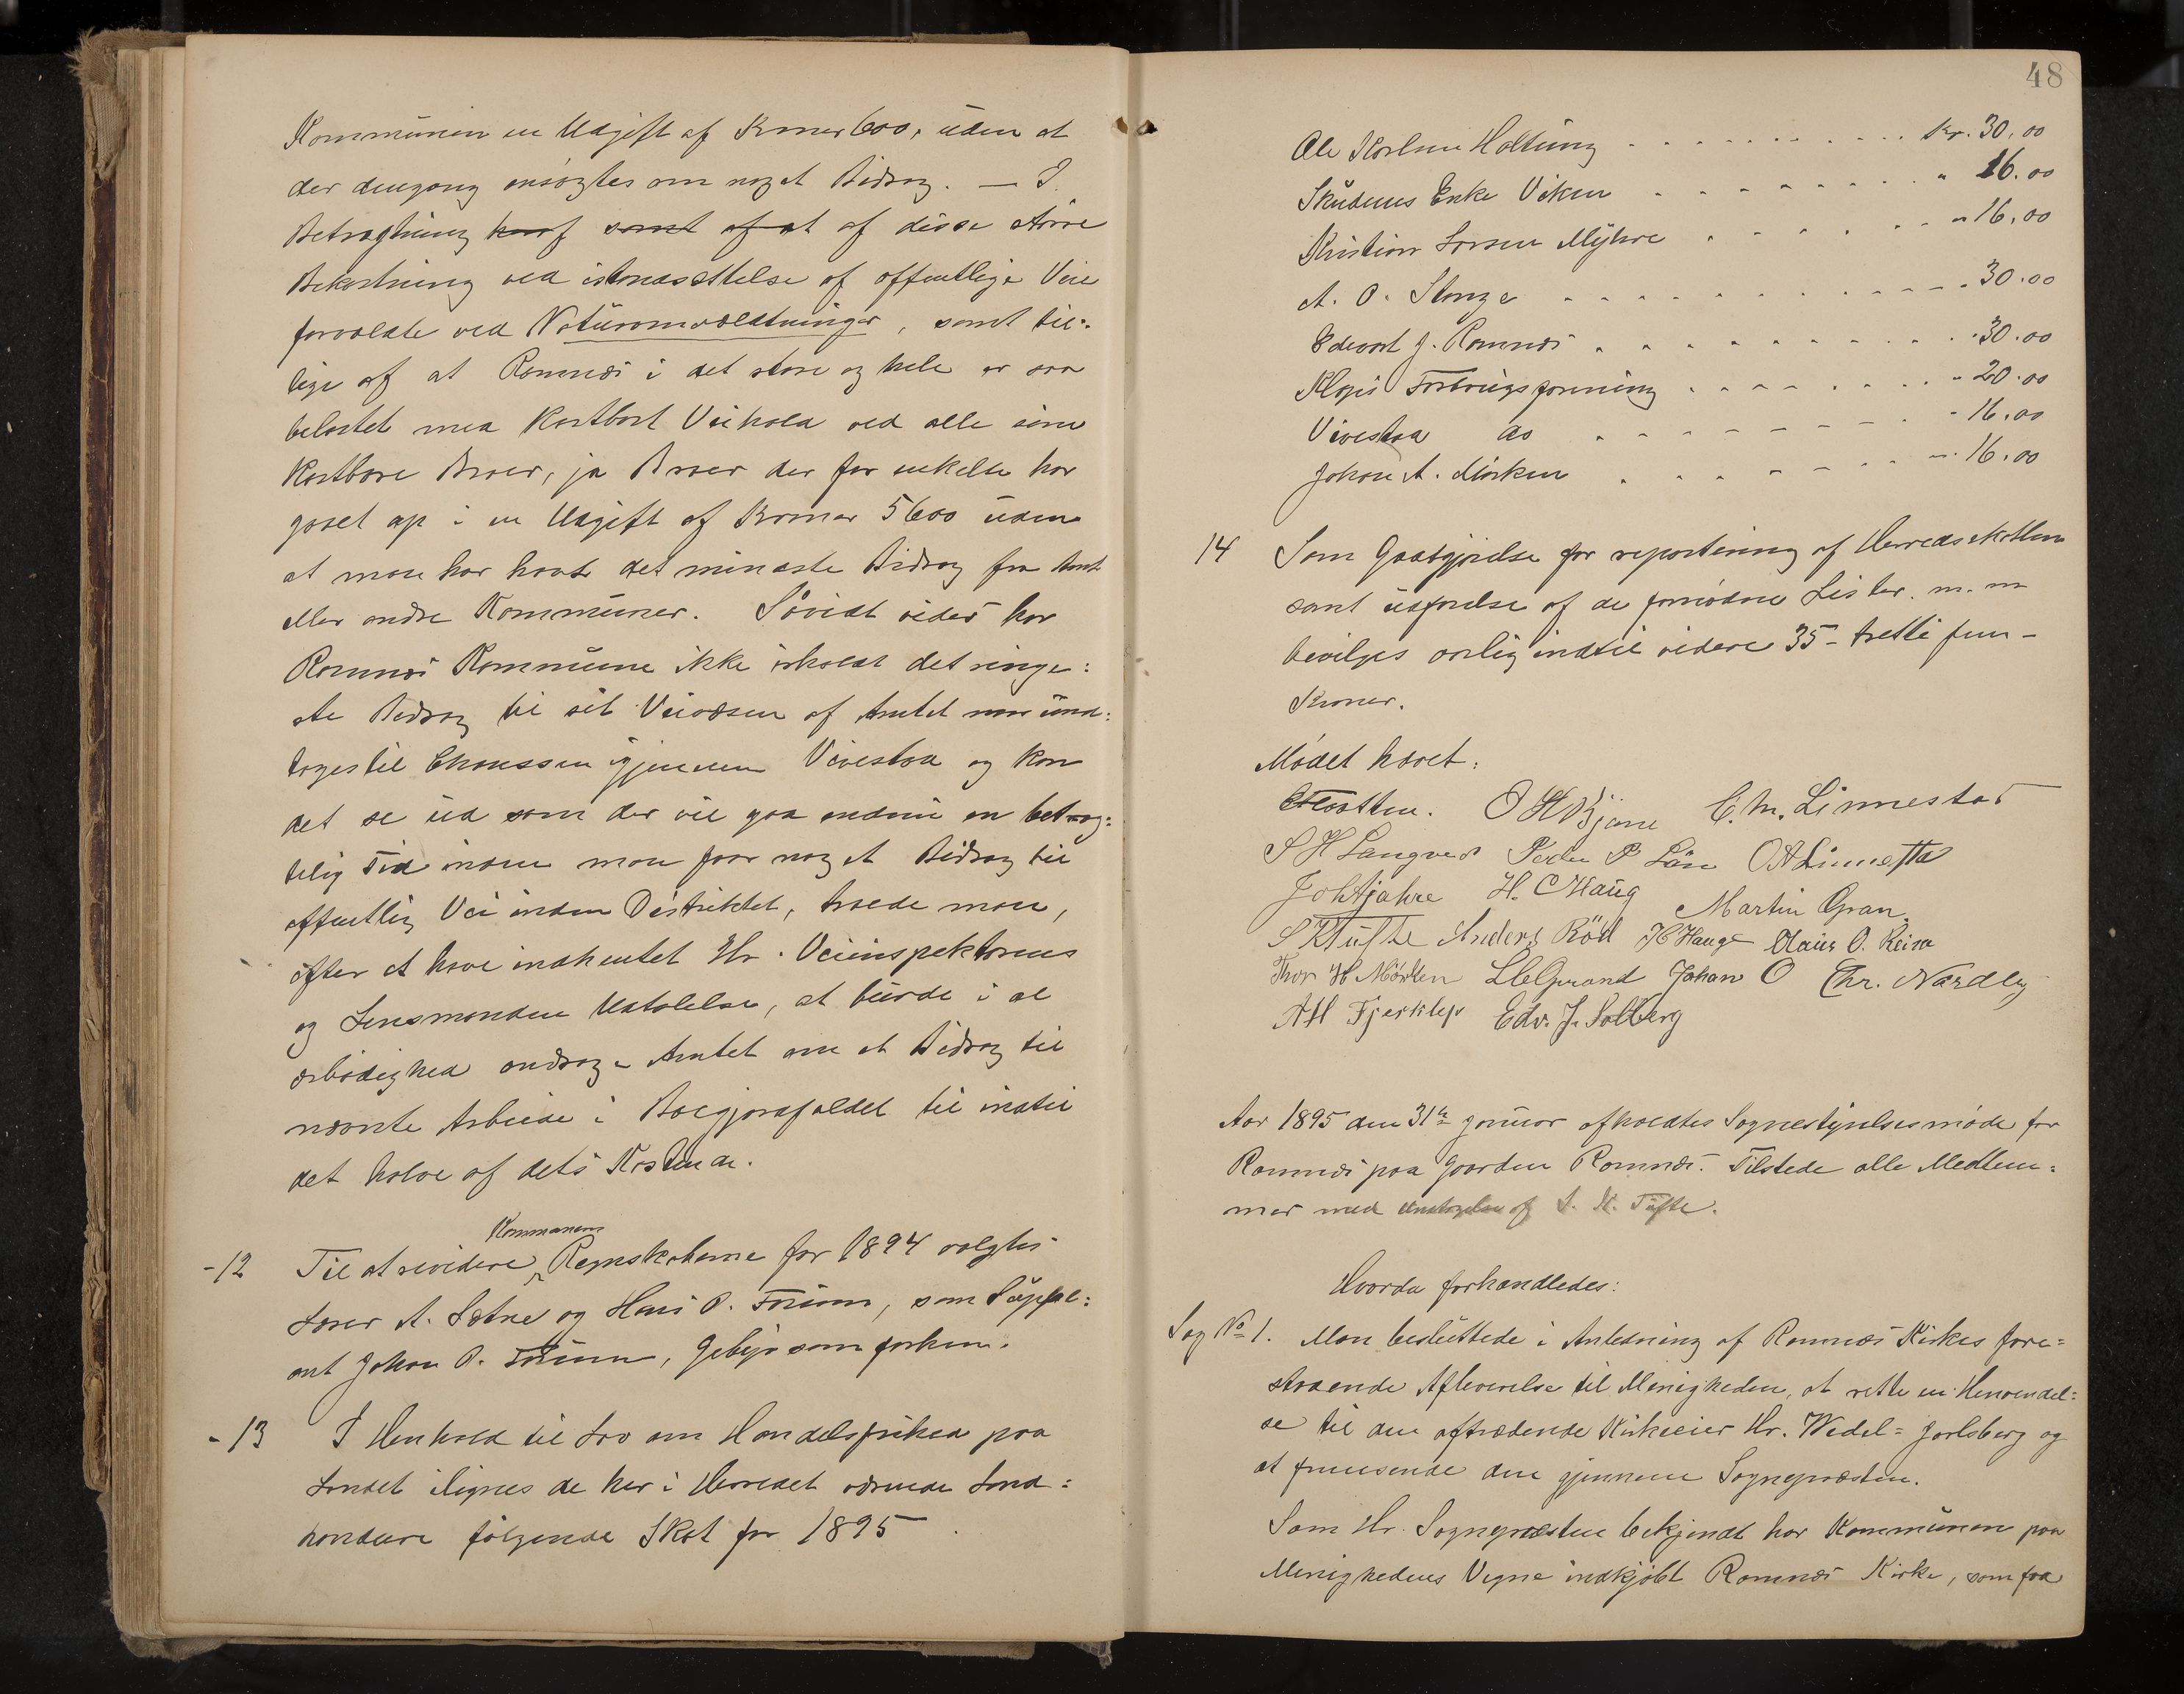 Kommunen en Udgift af Kroner 600, uden at
der dengang ansøgtes om noget Bidrag. — I
Betragtning heraf samt af at af disse større
Bekostning ved istandsættelse af offentlige Veie
forvoldte ved Naturomvæltninger, samt til-
lige af at Ramnæs i det store og hele er saa
belastet med kostbart Veihold ved alle sine
kostbare Broer, ja Broer der for enkelte har
gaaet op i en Udgift af Kroner 5600 uden
at man har havt det mindste Bidrag fra Amt
eller andre Kommuner. Såvidt vides har
Ramnæs Kommune ikke erholdt det ringe:
ste Bidrag til sit Veivæsen af Amtet naar und:
tages til Chausseen igjennem Vivestad og kan
det se ud som der vil gaa endnu en betrag:
telig Tid inden man faar noget Bidrag til
offentlig Vei inden Distriktet, troede man,
efter at have indhentet Hr. Veiinspektørens
og Lensmandens Udtalelse, at burde i al
ærbødighed andrage Amtet om et Bidrag til
nævnte Arbeide i jordfaldet til indtil
det halve af dets Kostende.
Kommunens
-12 Til at revidere Regnskaberne for 1894 valgtes
Lærer A. Sætre og Hans P. , som Supple:
ant Johan P. , Gebyr som forhen.
-13 I Henhold til Lov om Handelsfrihed paa
Landet ilignes de her i Herredet værende Land:
handlere følgende Skat for 1895
48
Ole Karlsen Holtung Kr. 30,00
Enke Viken " 16.00
Kristian Larsen Myhre " 16,00
A. O. Stange " 30.00
Edvart J. Ramnæs " 30.00
Klopp Forbrugsforening " 20.00
Vivestad do " 16.00
Johan A. Mörken " 16.00
14 Som Godtgjørelse for repartering af Herredsskatten
samt udførelse af de fornødne Lister m. m
bevilges aarlig indtil videre 35 - tretti fem -
Kroner.
Mødet hævet.
O H Bjane C. M. Linnestad
S H Langved Peder P. O A Linnestad
Joh H. C Haug Martin Gran.
S K Tufte Anders Röd H Hauge Claus O. Reisa
Thor H Mörken Johan O Chr. Nardby
A H Edv. J. Solberg
Aar 1895 den 31te januar afholdtes Sognestyrelsesmøde for
Ramnæs paa Gaarden Ramnæs. Tilstede alle Medlem=
mer med Undtagelse af S. K. Tufte.
Hvorda forhandledes:
Sag No 1. Man besluttede i Anledning af Ramnæs Kirkes fore=
staaende Afleverelse til Menigheden, at rette en Henvendel=
se til den aftrædende Kirkeeier Hr. Wedel=Jarlsberg og
at fremsende den gjennem Sognepræsten.
Som Hr. Sognepræsten bekjendt har Kommunen paa
Menighedens Vegne indkjøbt Ramnæs Kirke, som fra